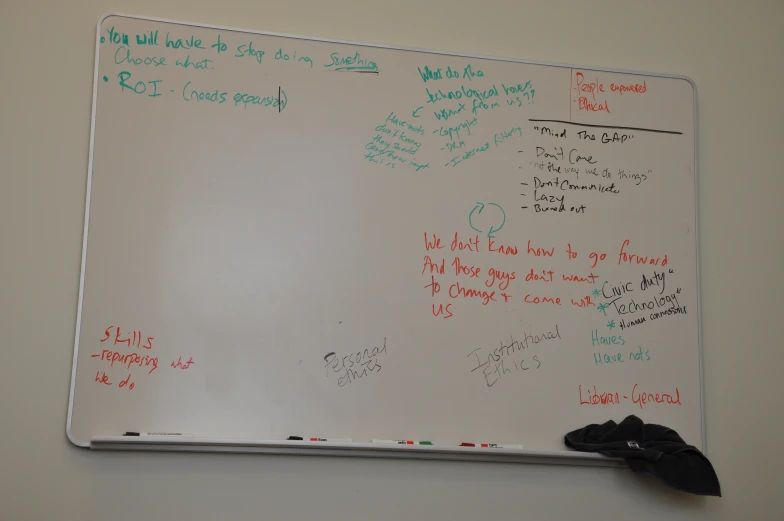 • You will have to stop doing Something
Choose what.
• ROI - (needs expansion)
What do the
technological haves
want from us??
- Copyright
- DRM
- Internet filtering
Have nots
don't know
they should
care/how impt
this is
People empowered
- Ethical
"Mind The GAP"
- Don't Care
- "Not the way we do things"
- Don't Communicate
- Lazy
- Burned out
We don't know how to go forward
And those guys don't want
to change + come with
US
* "Civic duty"
* "Technology"
* Human connections
Haves
Have nots
Librarian - General
Skills
- repurposing what
we do
Personal
ethics
Institutional
Ethics